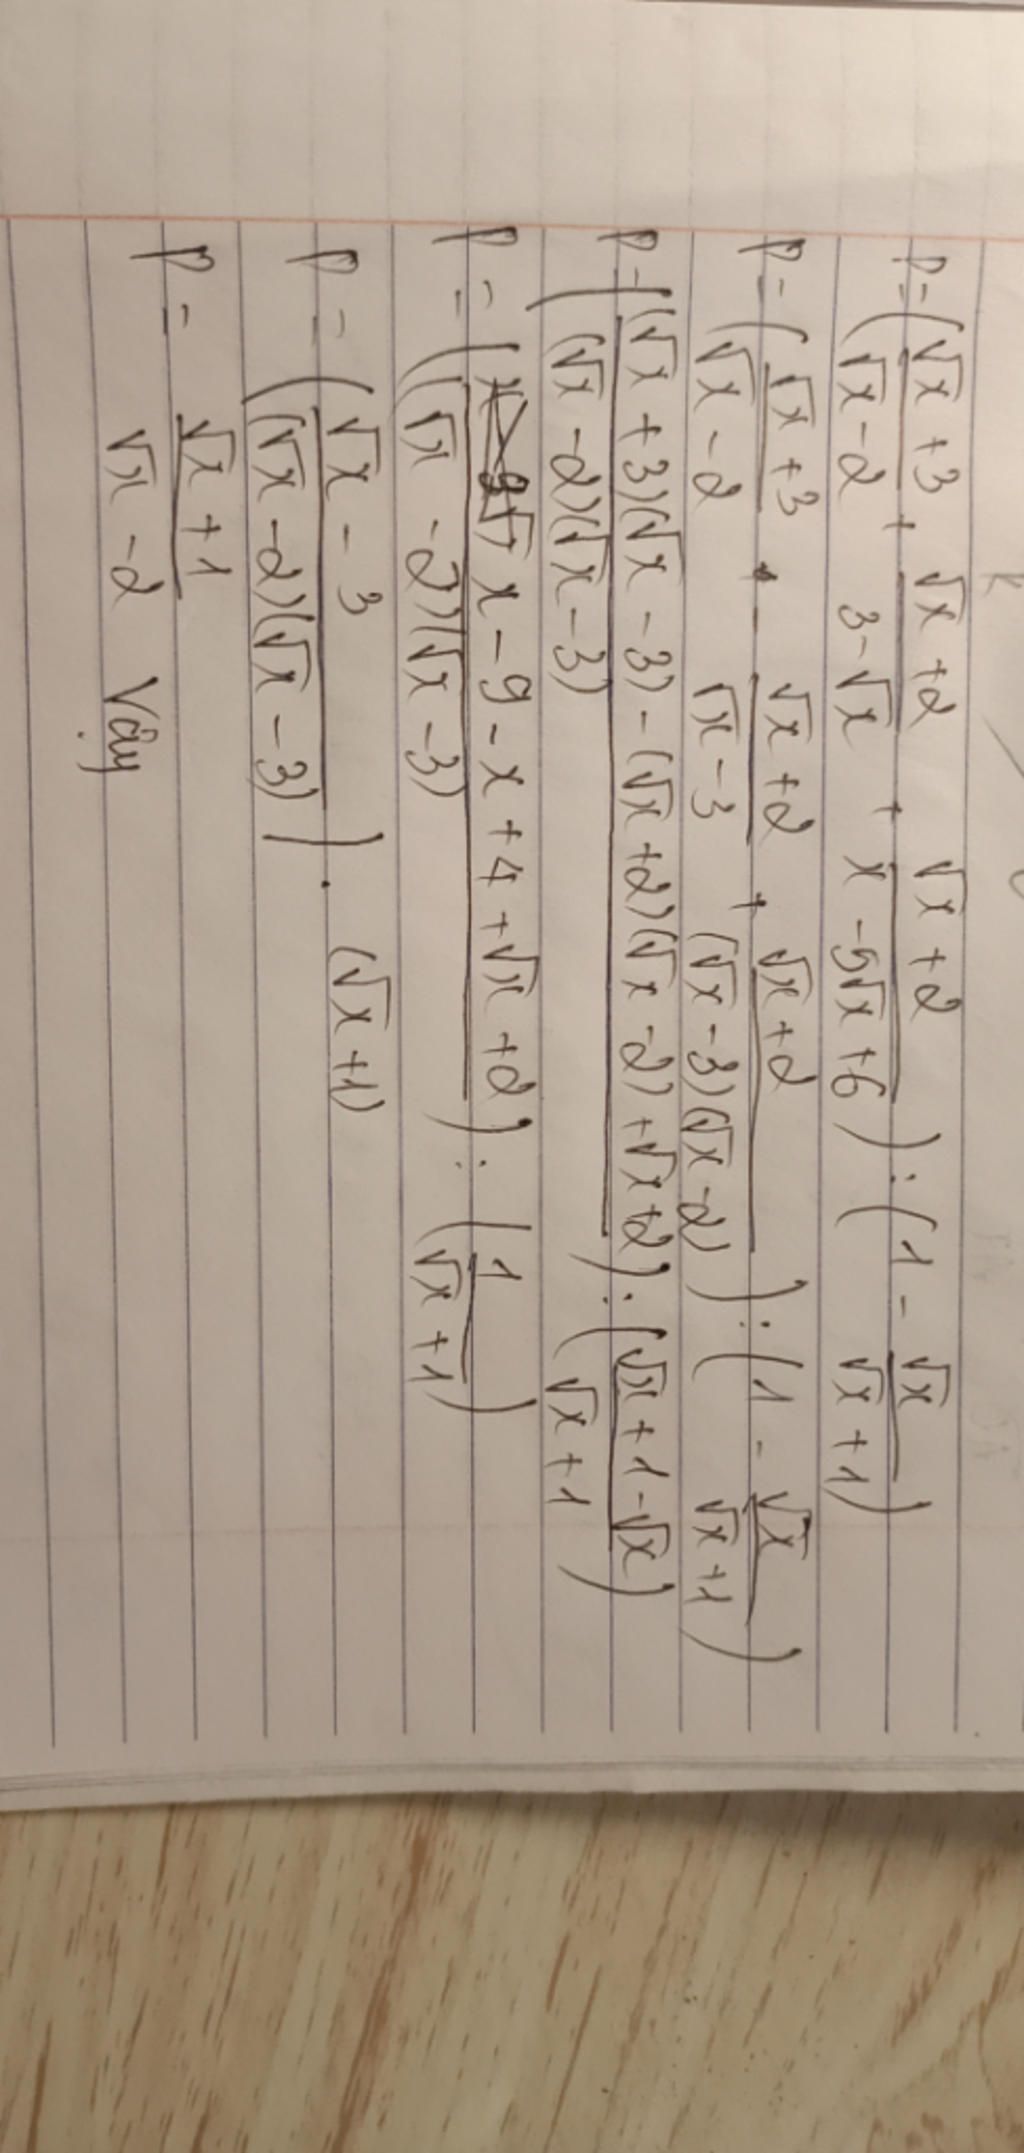 P = ( (√x + 3)/(√x - 2) + (√x + 2)/(3 - √x) + (√x + 2)/(x - 5√x + 6) ) : ( 1 - √x/(√x + 1) )
P = ( (√x + 3)/(√x - 2) - (√x + 2)/(√x - 3) + (√x + 2)/((√x - 3)(√x - 2)) ) : ( 1 - √x/(√x + 1) )
P = ( ((√x + 3)(√x - 3) - (√x + 2)(√x - 2) + √x + 2)/((√x - 2)(√x - 3)) ) : ( (√x + 1 - √x)/(√x + 1) )
P = ( (x - 9 - x + 4 + √x + 2)/((√x - 2)(√x - 3)) ) : ( 1/(√x + 1) )
P = ( (√x - 3)/((√x - 2)(√x - 3)) ) . (√x + 1)
P = (√x + 1)/(√x - 2) Vậy